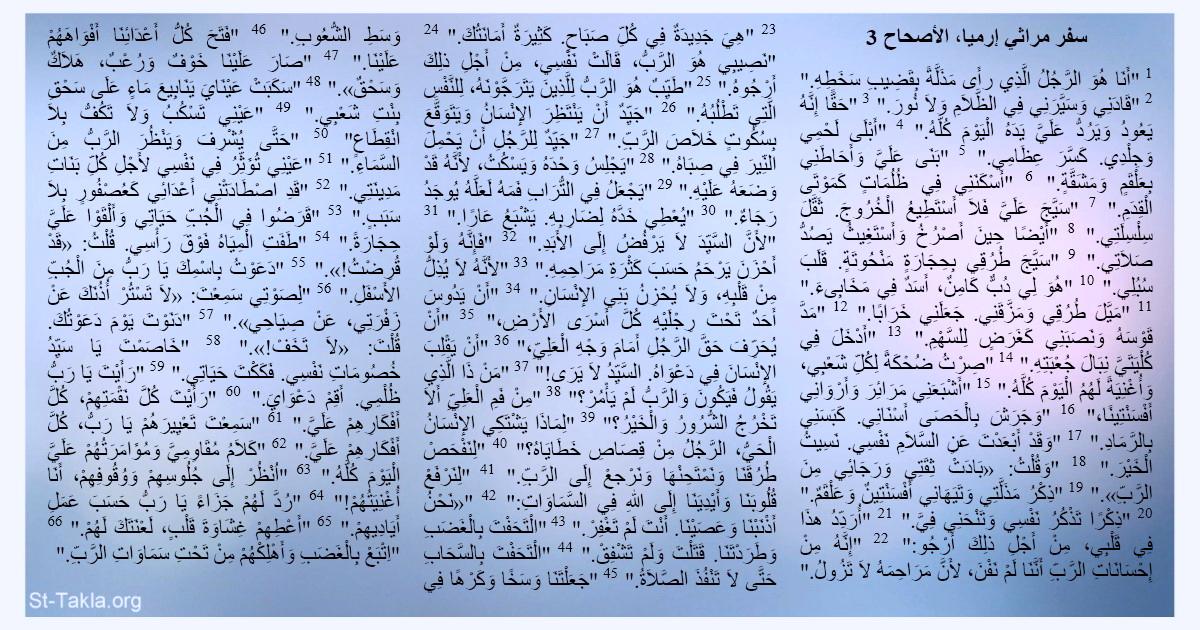 سفر مراثي إرميا، الأصحاح 3
1 "أَنَا هُوَ الرَّجُلُ الَّذِي رأَى مَذَلَّةً بِقَضِيبِ سَخَطِهِ."
2 "قَادَنِي وَسَيَّرَنِي فِي الظَّلاَمِ وَلاَ نُورَ." 3 "حَقًّا إِنَّهُ
يَعُودُ وَيَرُدُّ عَلَيَّ يَدَهُ الْيَوْمَ كُلَّهُ." 4 "أَبْلَى لَحْمِي
وَجِلْدِي. كَسَّرَ عِظَامِي." 5 "بَنَى عَلَيَّ وَأَحَاطَنِي
بِعَلْقَمٍ وَمَشَقَّةٍ." 6 "أَسْكَنَنِي فِي ظُلُمَاتٍ كَمَوْتَى
الْقِدَمِ." 7 "سَيَّجَ عَلَيَّ فَلاَ أَسْتَطِيعُ الْخُرُوجَ. ثَقَّلَ
سِلْسِلَتِي." 8 "أَيْضًا حِينَ أَصْرُخُ وَأَسْتَغِيثُ يَصُدُّ
صَلاَتِي." 9 "سَيَّجَ طُرُقِي بِحِجَارَةٍ مَنْحُوتَةٍ. قَلَبَ
سُبُلِي." 10 "هُوَ لِي دُبٌّ كَامِنٌ، أَسَدٌ فِي مَخَابِىءَ."
11 "مَيَّلَ طُرُقِي وَمَزَّقَنِي. جَعَلَنِي خَرَابًا." 12 "مَدَّ
قَوْسَهُ وَنَصَبَنِي كَغَرَضٍ لِلسَّهْمِ." 13 "أَدْخَلَ فِي
كُلْيَتَيَّ نِبَالَ جُعْبَتِهِ." 14 "صِرْتُ ضُحْكَةً لِكُلِّ شَعْبِي،
وَأُغْنِيَةً لَهُمُ الْيَوْمَ كُلَّهُ." 15 "أَشْبَعَنِي مَرَائِرَ وَأَرْوَانِي
أَفْسَنْتِينًا،" 16 "وَجَرَشَ بِالْحَصَى أَسْنَانِي. كَبَسَنِي
بِالرَّمَادِ." 17 "وَقَدْ أَبْعَدْتَ عَنِ السَّلاَمِ نَفْسِي. نَسِيتُ
الْخَيْرَ." 18 "وَقُلْتُ: «بَادَتْ ثِقَتِي وَرَجَائِي مِنَ
الرَّبِّ»." 19 "ذِكْرُ مَذَلَّتِي وَتَيَهَانِي أَفْسَنْتِينٌ وَعَلْقَمٌ."
20 "ذِكْرًا تَذْكُرُ نَفْسِي وَتَنْحَنِي فِيَّ." 21 "أُرَدِّدُ هذَا
فِي قَلْبِي، مِنْ أَجْلِ ذلِكَ أَرْجُو:" 22 "إِنَّهُ مِنْ
إِحْسَانَاتِ الرَّبِّ أَنَّنَا لَمْ نَفْنَ، لأَنَّ مَرَاحِمَهُ لاَ تَزُولُ."
23 "هِيَ جَدِيدَةٌ فِي كُلِّ صَبَاحٍ. كَثِيرَةٌ أَمَانَتُكَ." 24
"نَصِيبِي هُوَ الرَّبُّ، قَالَتْ نَفْسِي، مِنْ أَجْلِ ذلِكَ
أَرْجُوهُ." 25 "طَيِّبٌ هُوَ الرَّبُّ لِلَّذِينَ يَتَرَجَّوْنَهُ، لِلنَّفْسِ
الَّتِي تَطْلُبُهُ." 26 "جَيِّدٌ أَنْ يَنْتَظِرَ الإِنْسَانُ وَيَتَوَقَّعَ
بِسُكُوتٍ خَلاَصَ الرَّبِّ." 27 "جَيِّدٌ لِلرَّجُلِ أَنْ يَحْمِلَ
النِّيرَ فِي صِبَاهُ." 28 "يَجْلِسُ وَحْدَهُ وَيَسْكُتُ، لأَنَّهُ قَدْ
وَضَعَهُ عَلَيْهِ." 29 "يَجْعَلُ فِي التُّرَابِ فَمَهُ لَعَلَّهُ يُوجَدُ
رَجَاءٌ." 30 "يُعْطِي خَدَّهُ لِضَارِبِهِ. يَشْبَعُ عَارًا." 31
"لأَنَّ السَّيِّدَ لاَ يَرْفُضُ إِلَى الأَبَدِ." 32 "فَإِنَّهُ وَلَوْ
أَحْزَنَ يَرْحَمُ حَسَبَ كَثْرَةِ مَرَاحِمِهِ." 33 "لأَنَّهُ لاَ يُذِلُّ
مِنْ قَلْبِهِ، وَلاَ يُحْزِنُ بَنِي الإِنْسَانِ." 34 "أَنْ يَدُوسَ
أَحَدٌ تَحْتَ رِجْلَيْهِ كُلَّ أَسْرَى الأَرْضِ،" 35 "أَنْ
يُحَرِّفَ حَقَّ الرَّجُلِ أَمَامَ وَجْهِ الْعَلِيِّ،" 36 "أَنْ يَقْلِبَ
الإِنْسَانَ فِي دَعْوَاهُ. السَّيِّدُ لاَ يَرَى!" 37 "مَنْ ذَا الَّذِي
يَقُولُ فَيَكُونَ وَالرَّبُّ لَمْ يَأْمُرْ؟" 38 "مِنْ فَمِ الْعَلِيِّ أَلاَ
تَخْرُجُ الشُّرُورُ وَالْخَيْرُ؟" 39 "لِمَاذَا يَشْتَكِي الإِنْسَانُ
الْحَيُّ، الرَّجُلُ مِنْ قِصَاصِ خَطَايَاهُ؟" 40 "لِنَفْحَصْ
طُرُقَنَا وَنَمْتَحِنْهَا وَنَرْجعْ إِلَى الرَّبِّ." 41 "لِنَرْفَعْ
قُلُوبَنَا وَأَيْدِيَنَا إِلَى اللهِ فِي السَّمَاوَاتِ:" 42 "«نَحْنُ
أَذْنَبْنَا وَعَصَيْنَا. أَنْتَ لَمْ تَغْفِرْ." 43 "الْتَحَفْتَ بِالْغَضَبِ
وَطَرَدْتَنَا. قَتَلْتَ وَلَمْ تَشْفِقْ." 44 "الْتَحَفْتَ بِالسَّحَابِ
حَتَّى لاَ تَنْفُذَ الصَّلاَةُ." 45 "جَعَلْتَنَا وَسَخًا وَكَرْهًا فِي
وَسَطِ الشُّعُوبِ." 46 "فَتَحَ كُلُّ أَعْدَائِنَا أَفْوَاهَهُمْ
عَلَيْنَا." 47 "صَارَ عَلَيْنَا خَوْفٌ وَرُعْبٌ، هَلاَكٌ
وَسَحْقٌ»." 48 "سَكَبَتْ عَيْنَايَ يَنَابِيعَ مَاءٍ عَلَى سَحْقِ
بِنْتِ شَعْبِي." 49 "عَيْنِي تَسْكُبُ وَلاَ تَكُفُّ بِلاَ
انْقِطَاعٍ" 50 "حَتَّى يُشْرِفَ وَيَنْظُرَ الرَّبُّ مِنَ
السَّمَاءِ." 51 "عَيْنِي تُؤَثِّرُ فِي نَفْسِي لأَجْلِ كُلِّ بَنَاتِ
مَدِينَتِي." 52 "قَدِ اصْطَادَتْنِي أَعْدَائِي كَعُصْفُورٍ بِلاَ
سَبَبٍ." 53 "قَرَضُوا فِي الْجُبِّ حَيَاتِي وَأَلْقَوْا عَلَيَّ
حِجَارَةً." 54 "طَفَتِ الْمِيَاهُ فَوْقَ رَأْسِي. قُلْتُ: «قَدْ
قُرِضْتُ!»." 55 "دَعَوْتُ بِاسْمِكَ يَا رَبُّ مِنَ الْجُبِّ
الأَسْفَلِ." 56 "لِصَوْتِي سَمِعْتَ: «لاَ تَسْتُرْ أُذُنَكَ عَنْ
زَفْرَتِي، عَنْ صِيَاحِي»." 57 "دَنَوْتَ يَوْمَ دَعَوْتُكَ.
قُلْتَ: «لاَ تَخَفْ!»." 58 "خَاصَمْتَ يَا سَيِّدُ
خُصُومَاتِ نَفْسِي. فَكَكْتَ حَيَاتِي." 59 "رَأَيْتَ يَا رَبُّ
ظُلْمِي. أَقِمْ دَعْوَايَ." 60 "رَأَيْتَ كُلَّ نَقْمَتِهِمْ، كُلَّ
أَفْكَارِهِمْ عَلَيَّ." 61 "سَمِعْتَ تَعْيِيرَهُمْ يَا رَبُّ، كُلَّ
أَفْكَارِهِمْ عَلَيَّ." 62 "كَلاَمُ مُقَاوِمِيَّ وَمُؤَامَرَتُهُمْ عَلَيَّ
الْيَوْمَ كُلَّهُ." 63 "اُنْظُرْ إِلَى جُلُوسِهِمْ وَوُقُوفِهِمْ، أَنَا
أُغْنِيَتُهُمْ!" 64 "رُدَّ لَهُمْ جَزَاءً يَا رَبُّ حَسَبَ عَمَلِ
أَيَادِيهِمْ." 65 "أَعْطِهِمْ غِشَاوَةَ قَلْبٍ، لَعْنَتَكَ لَهُمْ." 66
"اِتْبَعْ بِالْغَضَبِ وَأَهْلِكْهُمْ مِنْ تَحْتِ سَمَاوَاتِ الرَّبِّ."
St-Takla.org